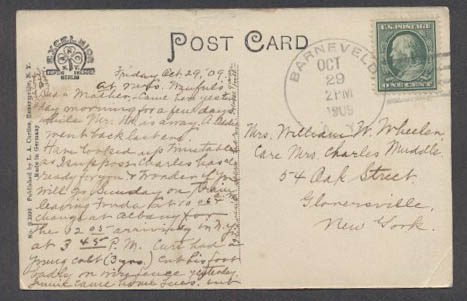 POST CARD
EXCELSIOR
BERLIN
No. Published by L. A. Curtiss, Barneveld, N. Y.
Made in Germany
BARNEVELD
OCT
29
2 PM
1909
U.S. POSTAGE
ONE CENT
Friday Oct 29, '09.
At Mrs.
Dear Mother - Came here yester
day morning for a few days
while Mr. is away. A.
went back last eve.
Have looked up timetable
as I suppose Charles has
ready for you & wonder if you
will go Sunday on train
leaving Fonda at 10
change at Albany for
the 12 03 arriving in N.Y.
at 3 45 P.M. Curt had a
young colt (3 yrs.) cut his foot
badly on wire fence yesterday.
came home Tues. but
Mrs. William W. Wheelen
Care Mrs. Charles Muddle
54 Oak Street.
Gloversville,
New York.